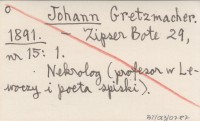 o Johann Gretzmacher.
1891. – Zipser Bote 29,
nr 15: 1.
Nekrolog (profesor w Le-
woczy i poeta spiski).